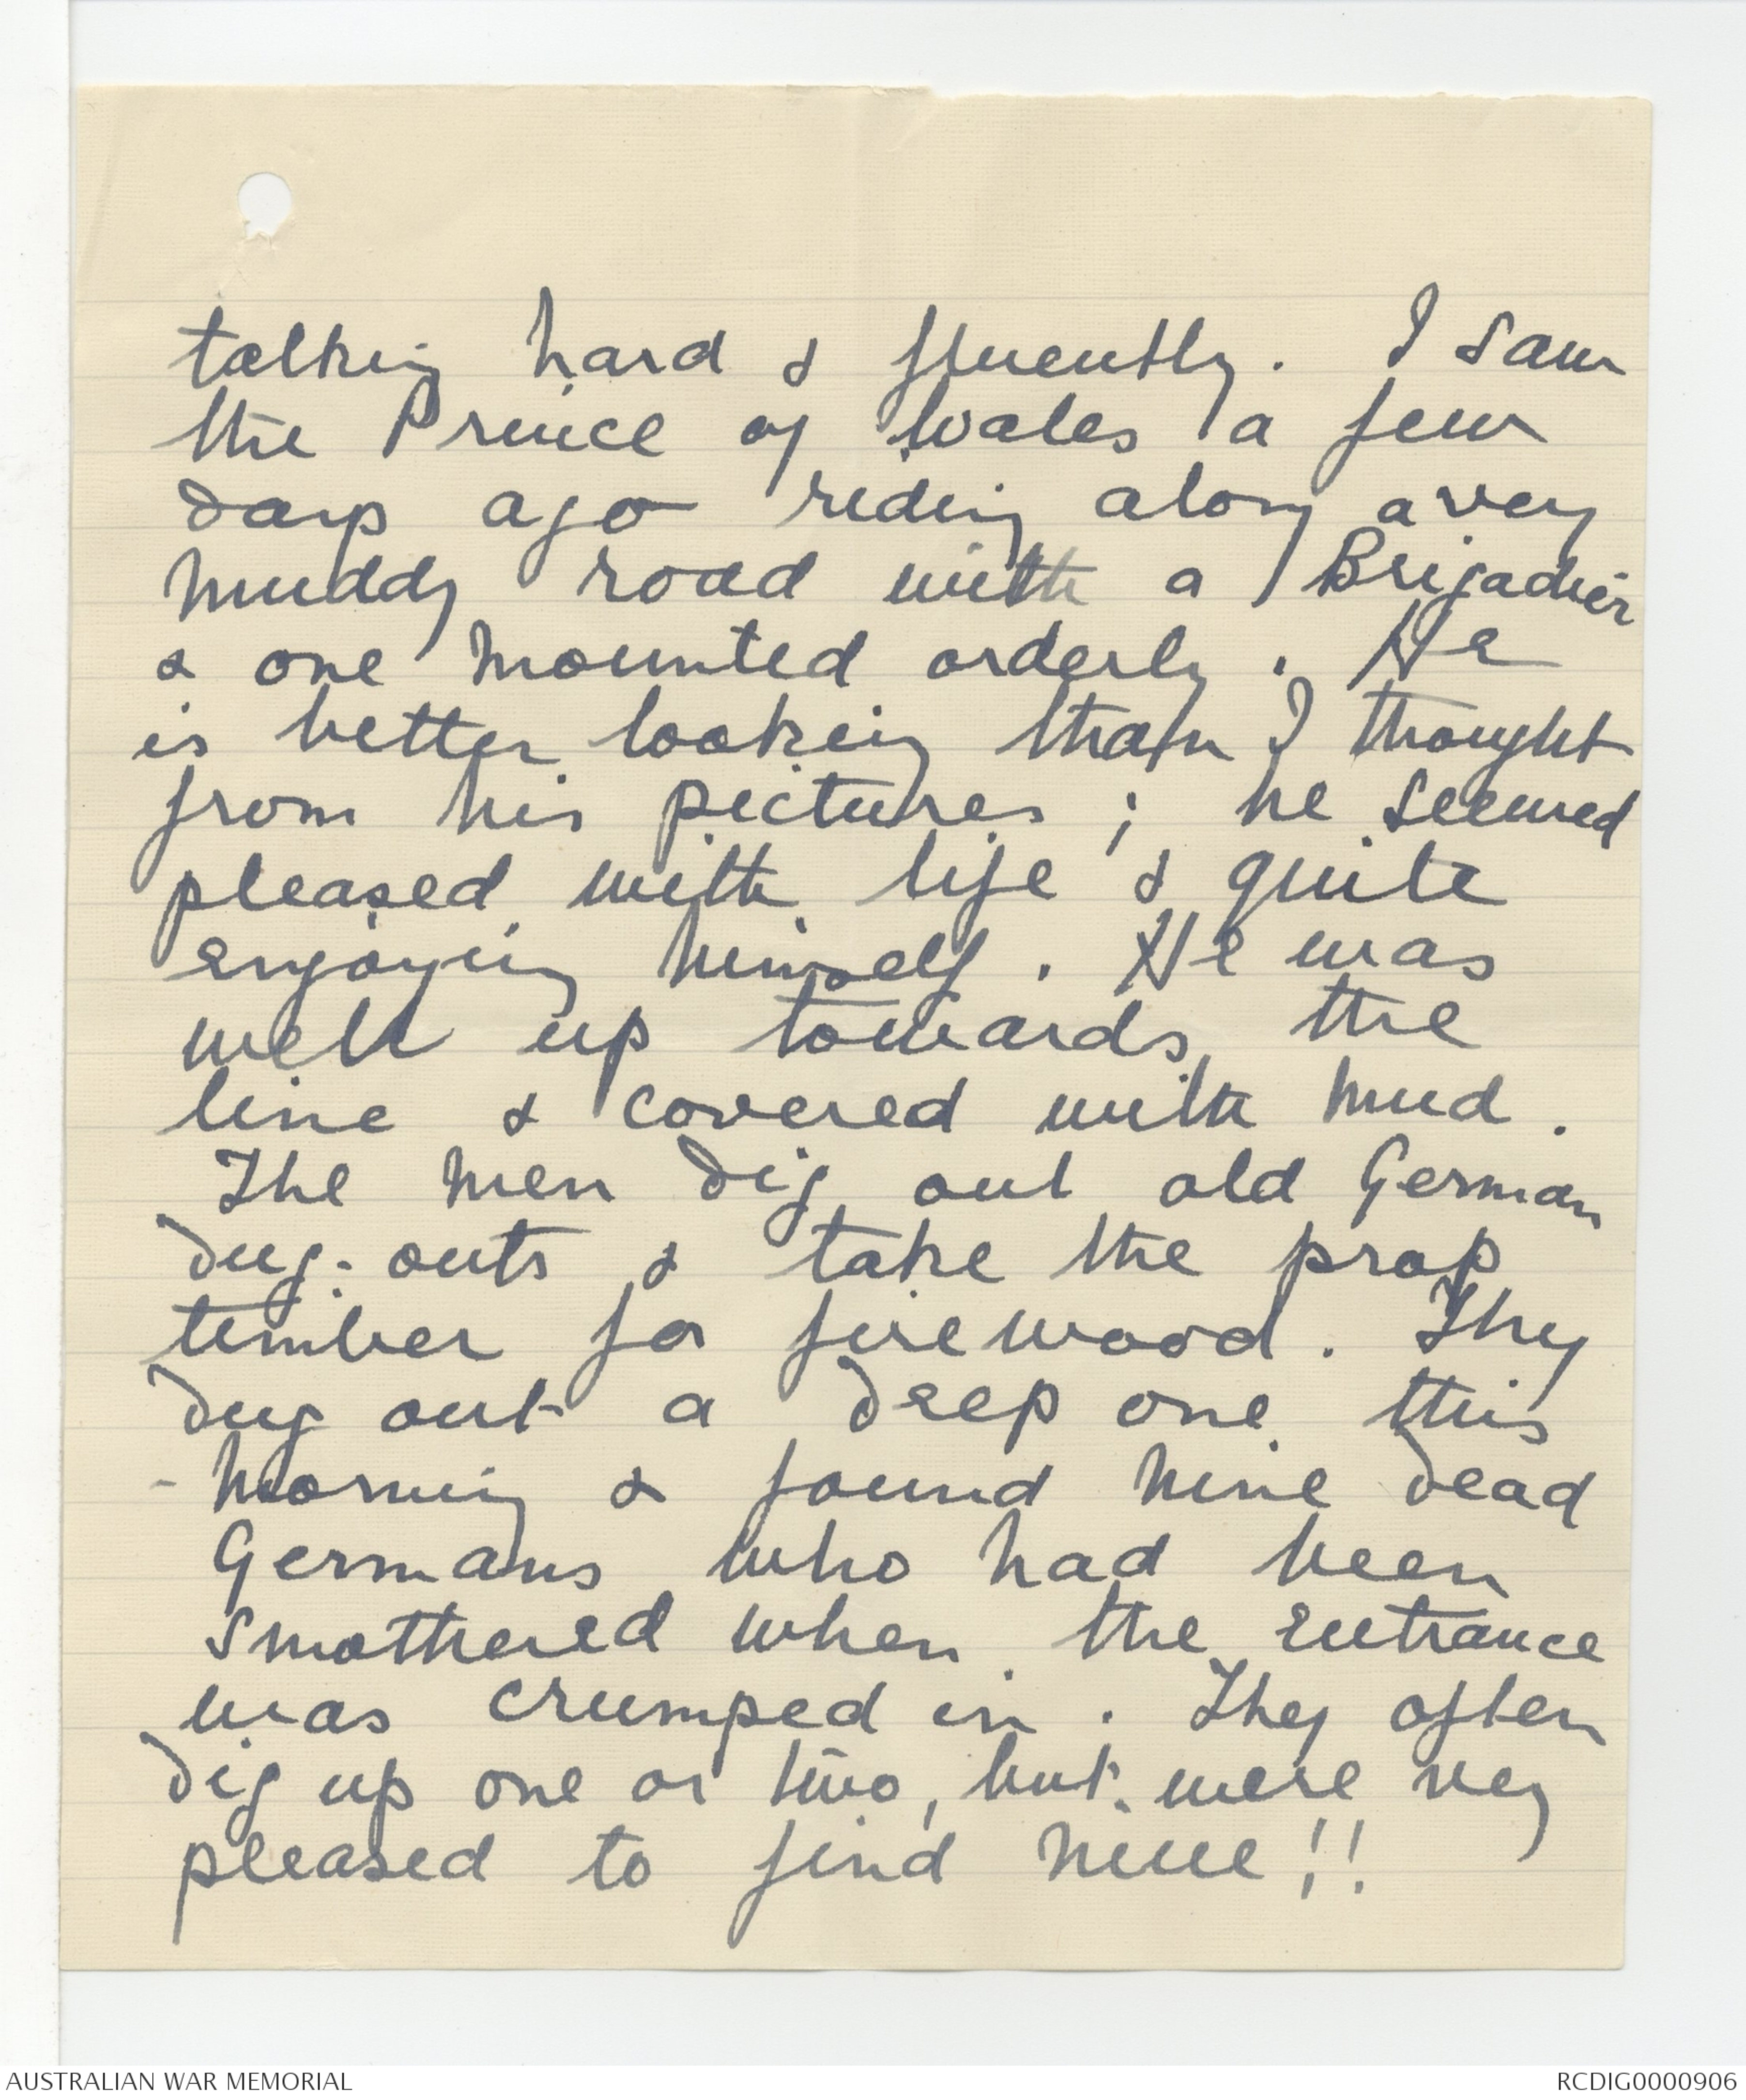 talking hard & fluently. I saw
the Prince of Wales a few
days ago riding along a very
muddy road with a Brigadier
& one mounted orderly. He
is better looking than I thought
from his pictures; he seemed
pleased with life & quite
enjoying himself. He was
well up towards the
line & covered with mud.
The men dig out old German
dug-outs & take the prop
timber for firewood. They
dug out a deep one this
morning & found nine dead
Germans who had been
smothered when the entrance
was crumped in. They often
dig up one or two, but were very
pleased to find nine!!
AUSTRALIAN WAR MEMORIAL
RCDIG0000906